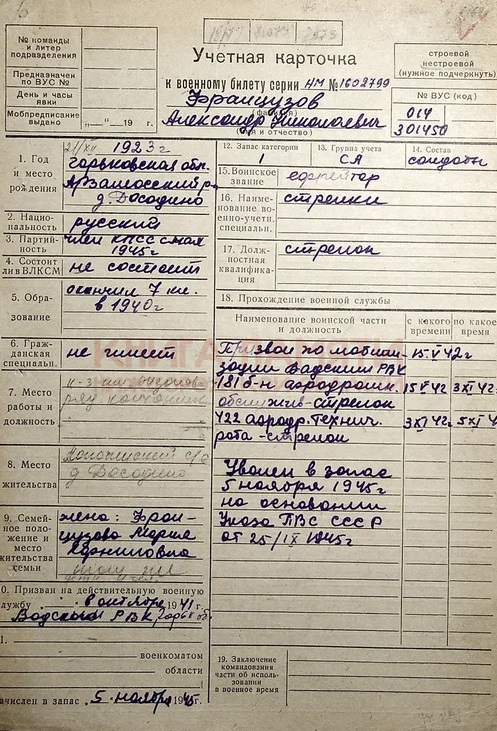 № команды
и литер
подразделения
Предназначен
по ВУС №
День и часы
явки
Мобпредписание
выдано „ — “ 19 г.
Учетная карточка
к военному билету серии НМ № 1602799
Французов
Александр Николаевич
(имя и отчество)
строевой
нестроевой
(нужное подчеркнуть)
№ ВУС (код)
014
301450
1. Год
и место
рождения
21/XII 1923 г
Горьковская обл.
Арзамасский р-
д. Досадино
2. Нацио-
нальность
русский
3. Партий-
ность
член КПСС с мая
1945 г.
4. Состоит
ли в ВЛКСМ
не состоит
5. Обра-
зование
окончил 7 кл.
в 1940 г
6. Граж-
данская
специальн.
не имеет
7. Место
работы и
должность
8. Место
жительства
д Досадино
9. Семей-
ное поло-
жение и
место
жительства
семьи
жена: Фран-
цузова Мария
Корниловна
0. Призван на действительную военную
службу в октября 1941 г.
Вадский РВК
военкоматом
области
зачислен в запас 5 ноября 1945 г.
12. Запас категории
1
13. Группа учета
СА
14. Состав
солдаты
15. Воинское
звание
ефрейтор
16. Наиме-
нование во-
енно-учетн.
специальн.
стрелки
17. Долж-
ностная
квалифика-
ция
стрелок
18. Прохождение военной службы
Наименование воинской части
и должность
с какого
времени
по какое
время
Призван по мобили-
зации Вадским РВК
15 V 42 г
181 б-н аэродромн.
обслужив-стрелок
15 V 42
3 XI 42
422 аэродр. технич.
рота - стрелок
3 XI 42
5 XI 4
Уволен в запас
5 ноября 1945 г
на основании
Указа ПВС СССР
от 25/IX 1945 г
19. Заключение
командования
части об исполь-
зовании
в военное время